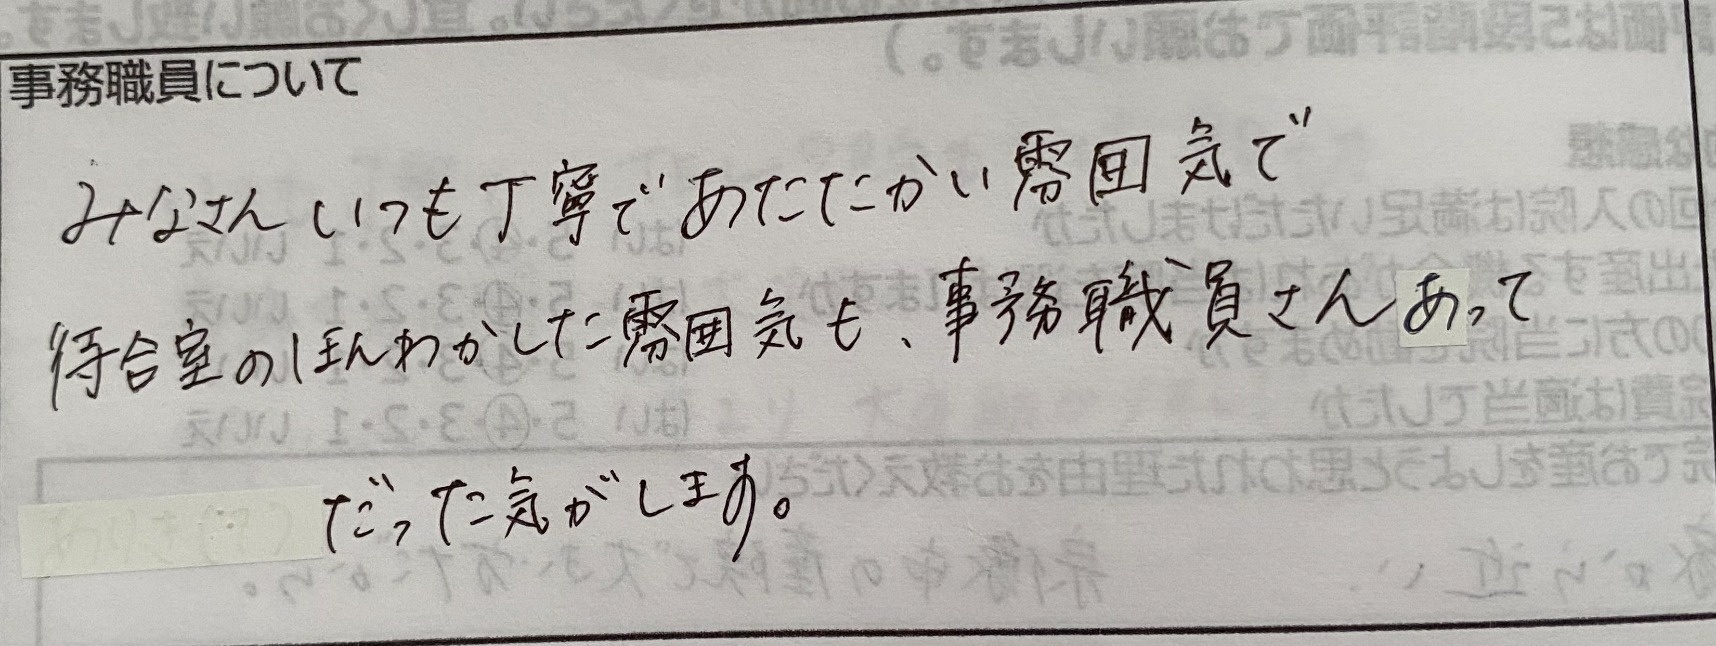 事務職員について
みなさんいつも丁寧であたたかい雰囲気で
待合室のほんわかした雰囲気も、事務職員さんあって
だった気がします。